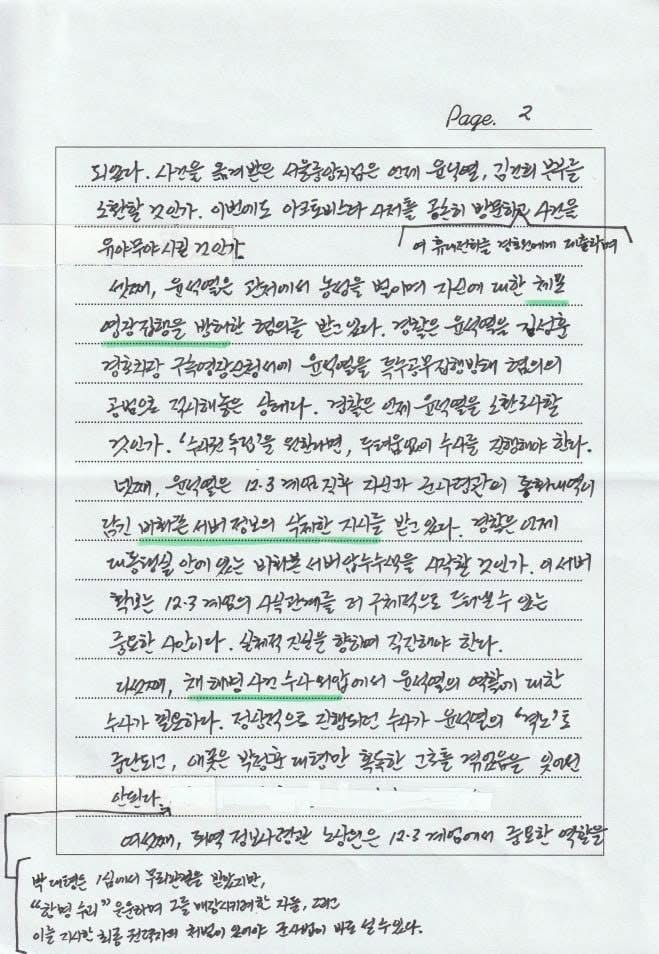 Page. 2
되었다. 사건을 옮겨받은 서울중앙지검은 언제 윤석열, 김건희 부부를
소환할 것인가. 이번에도 아크로비스타 사저를 공손히 방문하고 사건을
여 휴대전화를 경호원에게 제출하며
유야무야 시킬 것인가
셋째, 윤석열은 관저에서 농성을 벌이며 자신에 대한 체포
영장집행을 방해한 혐의를 받고 있다. 경찰은 윤석열을 김성훈
경호차장 구속영장신청서에 윤석열을 특수공무집행방해 혐의의
공범으로 적시해놓은 상태다. 경찰은 언제 윤석열을 소환조사할
것인가. '수사권 독립'을 원한다면, 두려움없이 수사를 진행해야 한다.
넷째, 윤석열은 12.3 계엄 직후 자신과 군사령관의 통화내역이
담긴 비화폰 서버 정보의 삭제한 지시를 받고 있다. 경찰은 언제
대통령실 안에 있는 비화폰 서버 압수수색을 시작할 것인가. 이 서버
확보는 12.3 계엄의 사실관계를 더 구체적으로 드러낼 수 있는
중요한 사안이다. 실체적 진실을 향하여 직진해야 한다.
다섯째, 채 해병 사건 수사외압에서 윤석열의 역할에 대한
수사가 필요하다. 정상적으로 진행되던 수사가 윤석열의 '격노'로
중단되고, 애꿎은 박정훈 대령만 혹독한 고초를 겪었음을 잊어선
안된다.
여섯째, 퇴역 정보사령관 노상원은 12.3 계엄에서 중요한 역할을
박 대령은 1심에서 무죄판결을 받았지만,
"한명 수괴" 운운하며 그를 매장시키려한 자들, 그리고
이를 지시한 최종 권력자의 처벌이 있어야 군사법이 바로 설 수 있다.